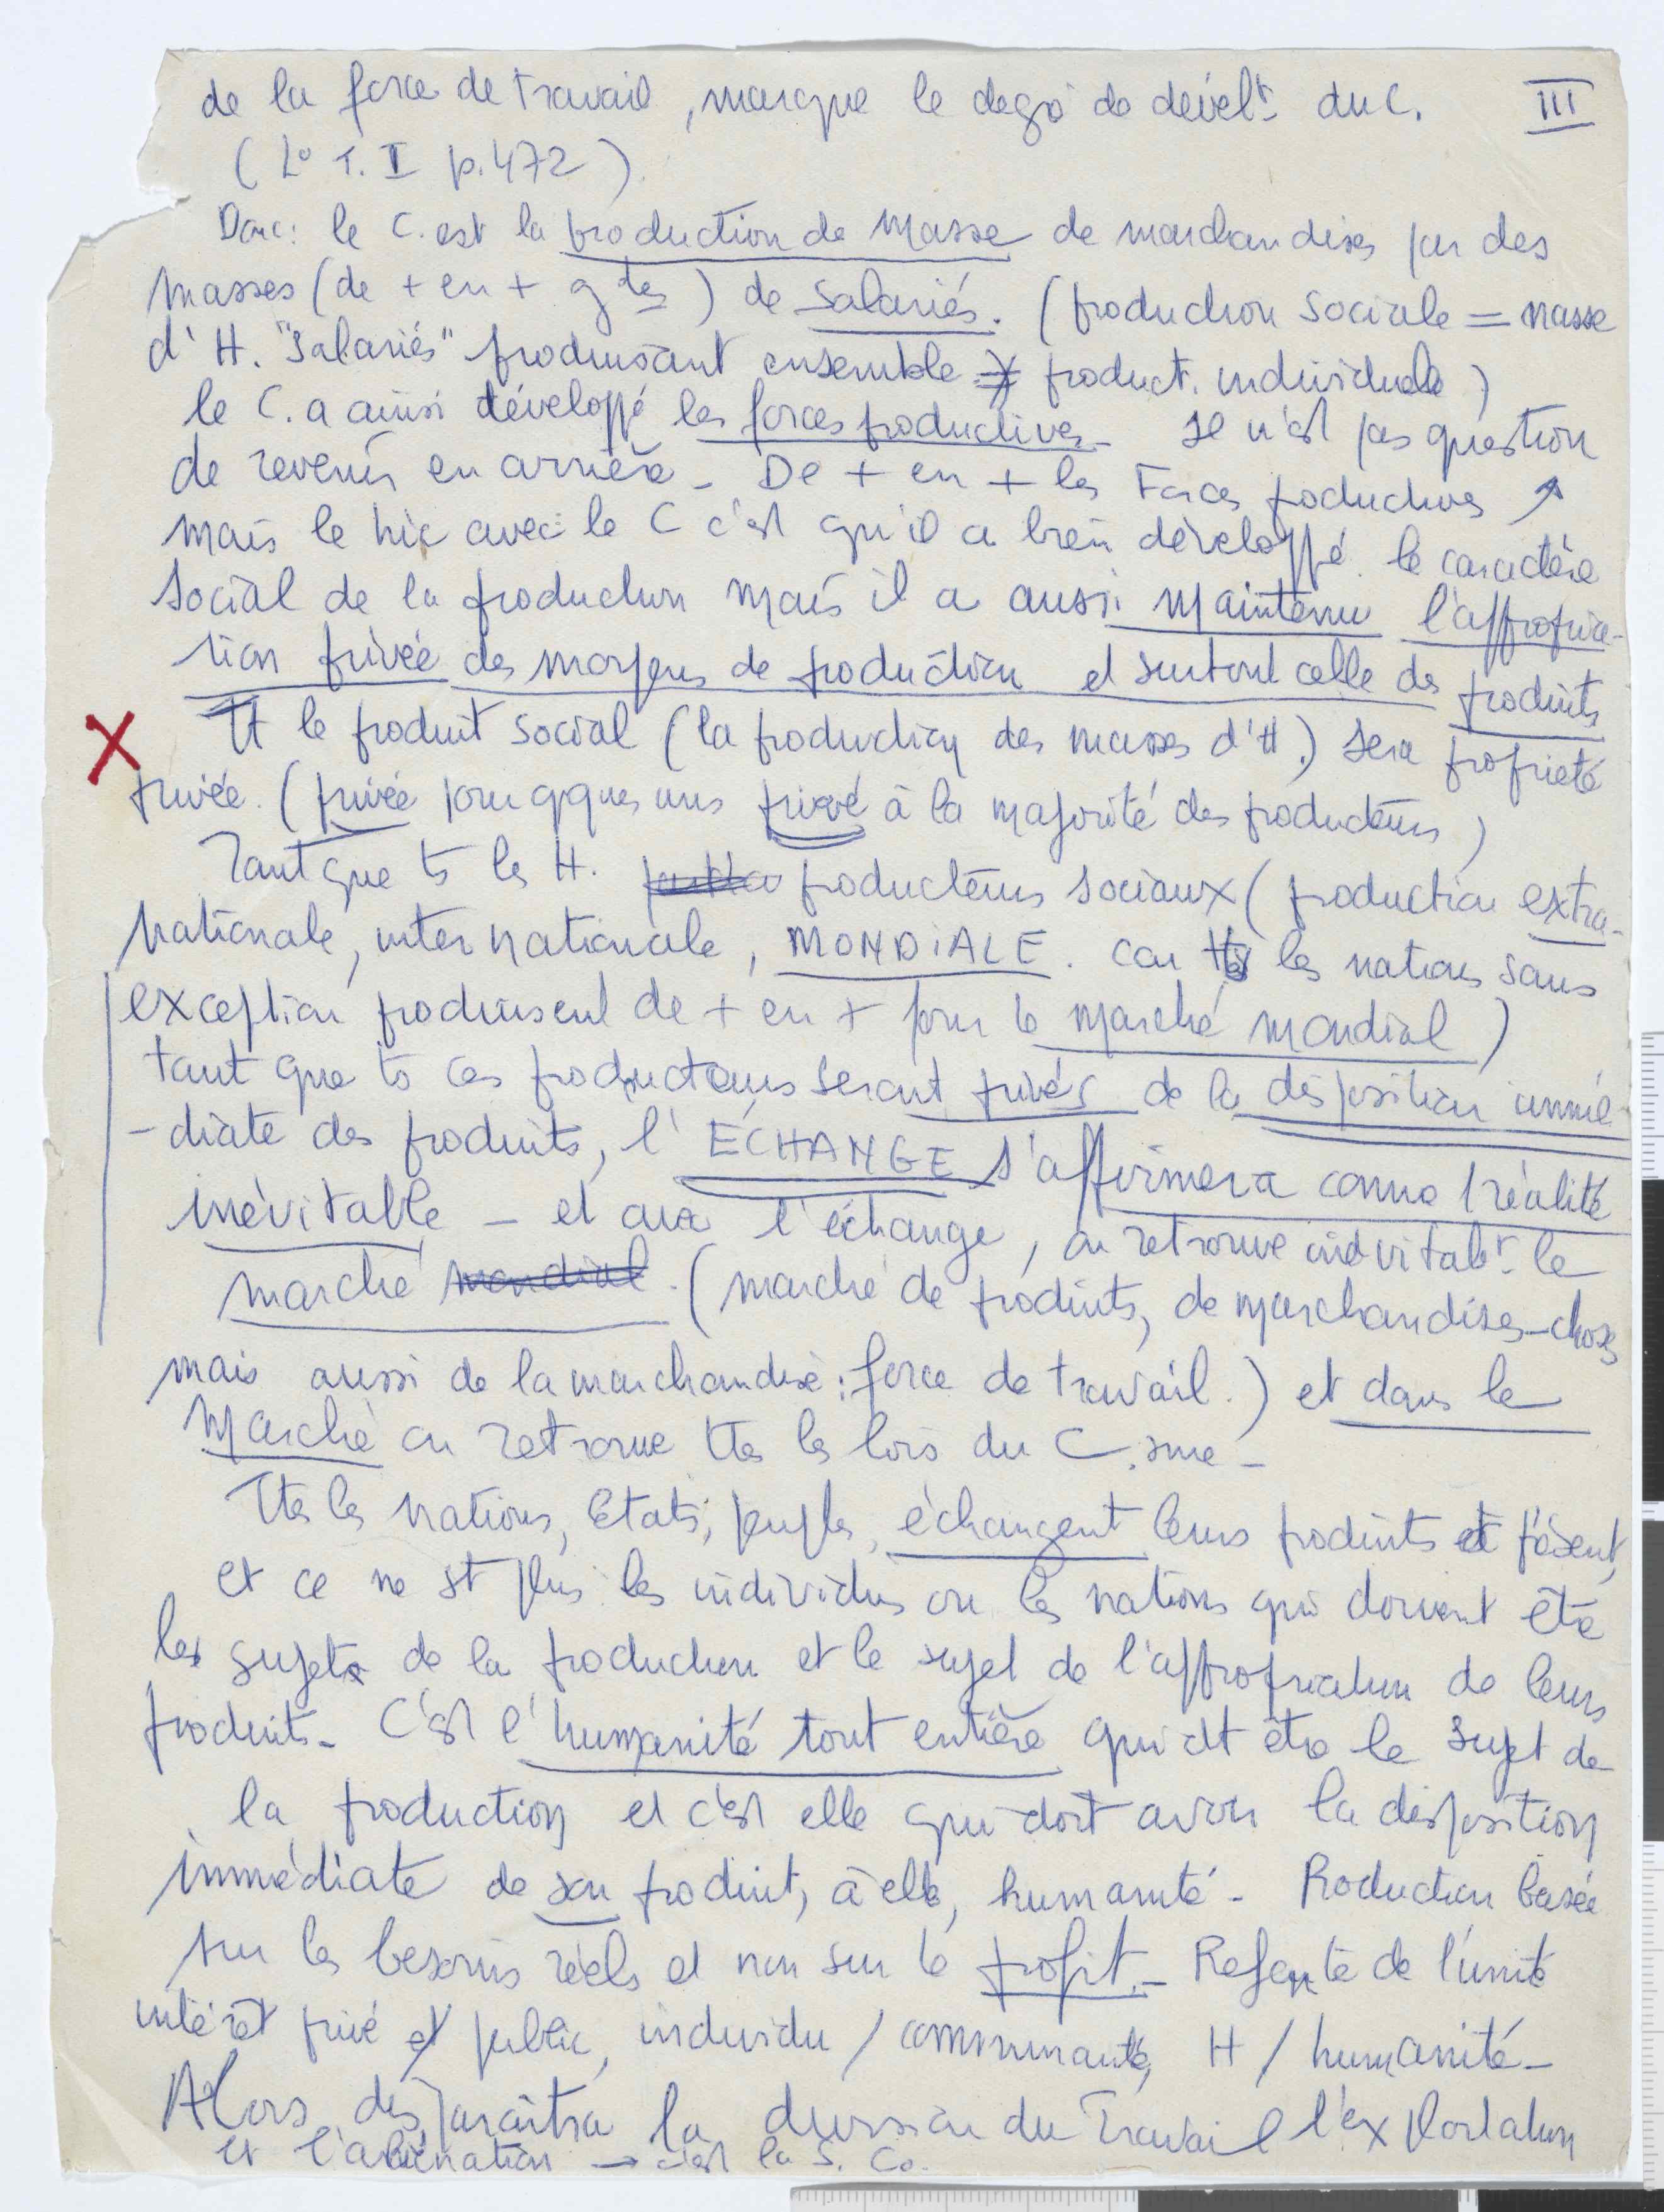 de la force de travail, marque le degré de dével.t du C. III
(L° T. I p. 472)
Donc : le C. est la production de masse de marchandises par des
masses (de + en + gdes) de salariés. (production sociale = masse
d'H. "salariés" produisant ensemble ≠ product. individuelle)
le C. a ainsi développé les forces productives - Il n'est pas question
de revenir en arrière - De + en + les Forces productives ↗
mais le hic avec le C c'est qu'il a bien développé le caractère
social de la production mais il a aussi maintenu l'appropria-
tion privée des moyens de production et surtout celle des produits
Tt le produit social (la production des masses d'H.) sera propriété
privée. (privée pour qques uns privé à la majorité des producteurs)
Tant que ts les H. producteurs sociaux (production extra-
nationale, internationale, MONDIALE. car ttes les nations sans
exception produisent de + en + pour le marché mondial)
tant que ts ces producteurs seront privés de la disposition immé-
-diate des produits, l'ÉCHANGE s'affirmera comme 1 réalité
inévitable - et avec l'échange, on retrouve inévitabt. le
marché mondial. (marché de produits, de marchandises-choses
mais aussi de la marchandise : force de travail.) et dans le
Marché on retrouve ttes les lois du C.sme -
Ttes les nations, Etats, peuples, échangent leurs produits à présent,
et ce ne st plus les individus ou les nations qui doivent être
les sujets de la production et le sujet de l'appropriation de leurs
produits - C'est l'humanité tout entière qui dt être le sujet de
la production et c'est elle qui doit avoir la disposition
immédiate de son produit, à elle, humanité - Production basée
sur les besoins réels et non sur le profit - Refonte de l'unité
intérêt privé et public, individu / communauté, H / humanité -
Alors disparaîtra la division du Travail l'exploitation
et l'aliénation → c'est la S. Co.